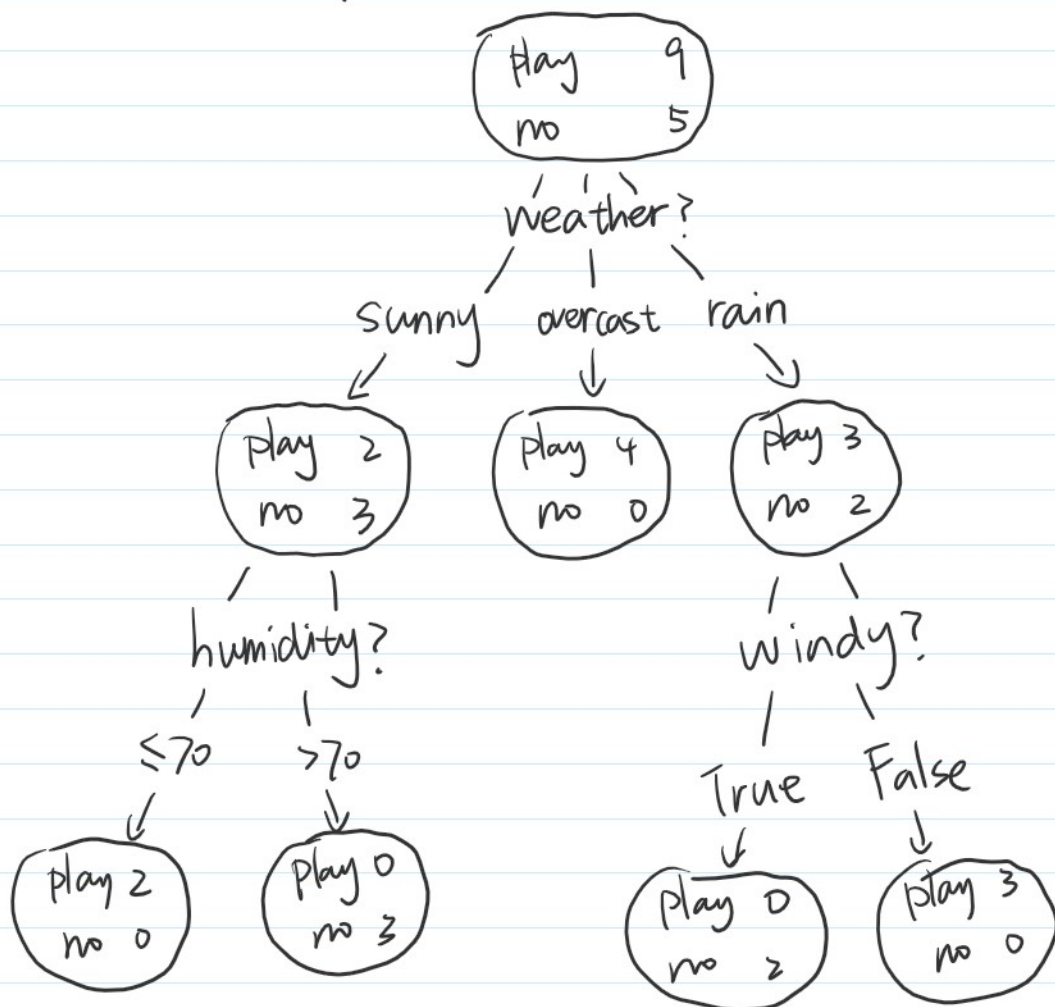 play 9
no 5
weather?
sunny overcast rain
play 2
no 3
play 4
no 0
play 3
no 2
humidity?
windy?
≤70 >70
True False
play 2
no 0
play 0
no 3
play 0
no 2
play 3
no 0